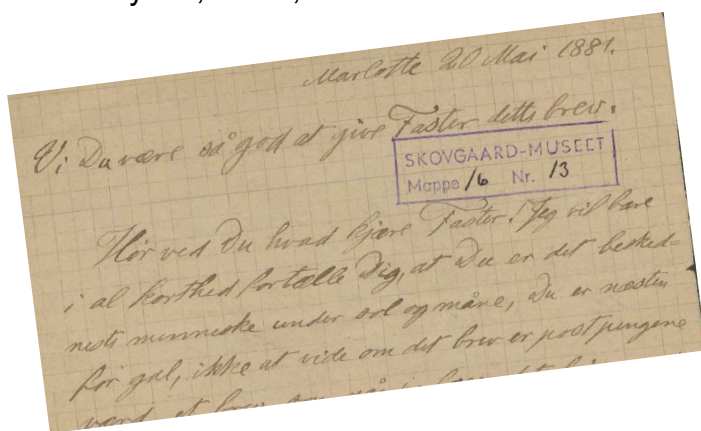 Marlotte 20 Mai 1881.
Vi Du være så god at give Faster dette brev.
SKOVGAARD-MUSEET
Mappe 16 Nr. 13
Hør ved Du hvad kjære Faster! Jeg vil bare
i al korthed fortælle Dig, at Du er det besked=
neste menneske under sol og måne, Du er næsten
for gal, ikke at vide om dit brev er postpengene
værd, et brev